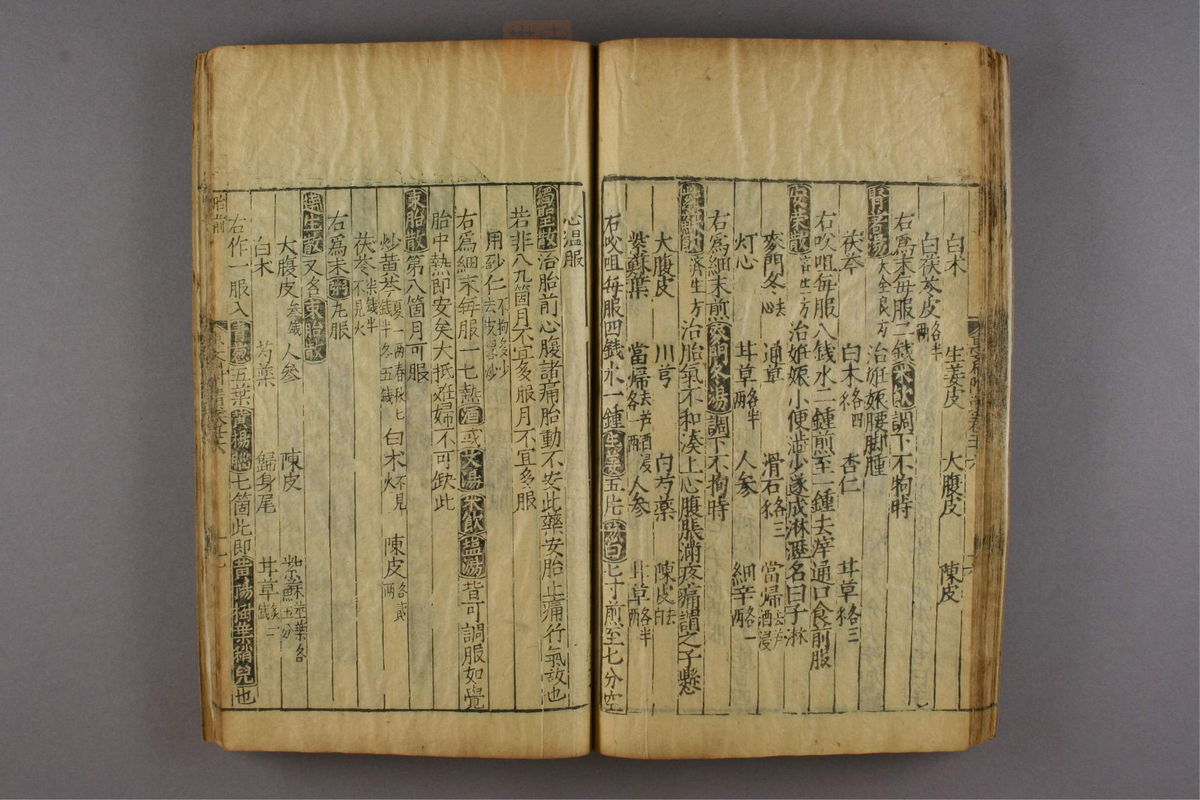 白术 生姜皮 大腹皮 陳皮
白茯苓皮各半兩
右為末每服二錢米飲調下不拘時
腎著湯大全良方 治姙娠腰脚腫
茯苓 白术各四 杏仁 甘草各三
右㕮咀每服八錢水二鍾煎至一鍾去滓通口食前服
安榮散 治姙娠小便澁少遂成淋瀝名曰子淋
麥門冬去心 通草 滑石各三 當歸去芦酒浸
灯心 甘草各半兩 人參 細辛各一兩
右為細末煎麥門冬湯調下不拘時
濟生方 治胎氣不和湊上心腹脹滿疼痛謂之子懸
大腹皮 川芎 白芍藥 陳皮去白
紫蘇葉 當歸去芦酒浸各一兩 人參 甘草各半兩
右㕮咀每服四錢水一鍾生姜五片葱白七寸煎至七分空
心溫服
獨聖散 治胎前心腹諸痛胎動不安此藥安胎止痛行氣故也
若非八九箇月不宜多服月不宜多服
用砂仁不拘多少去皮畧炒
右為細末每服一七熱酒或艾湯米飲塩湯皆可調服如覺
胎中熱即安矣大抵姙婦不可缺此
束胎散 第八箇月可服
炒黄芩夏一兩春秋七錢半冬五錢 白术不見火 陳皮各貳兩
茯苓不見火柒錢半
右為末粥丸服
達生散 又名束胎散
大腹皮叁錢 人參 陳皮 紫蘇並莖葉各五分
白术 芍藥 歸身尾 甘草炙二錢
右作一服入青葱五葉黄楊腦七箇此即黄陽樹葉稍兒也
胎前